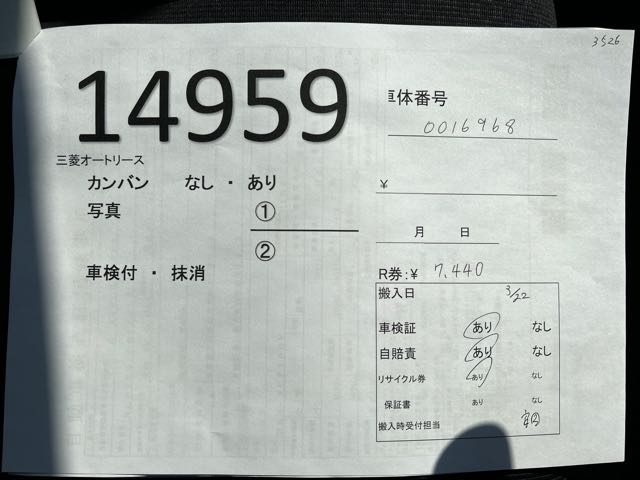 3526
14959
車体番号
0016968
三菱オートリース
カンバン なし ・ あり
¥
写真 ①
月 日
②
車検付 ・ 抹消
R券:¥ 7,440
搬入日 3/22
車検証 あり なし
自賠責 あり なし
リサイクル券 あり なし
保証書 あり なし
搬入時受付担当